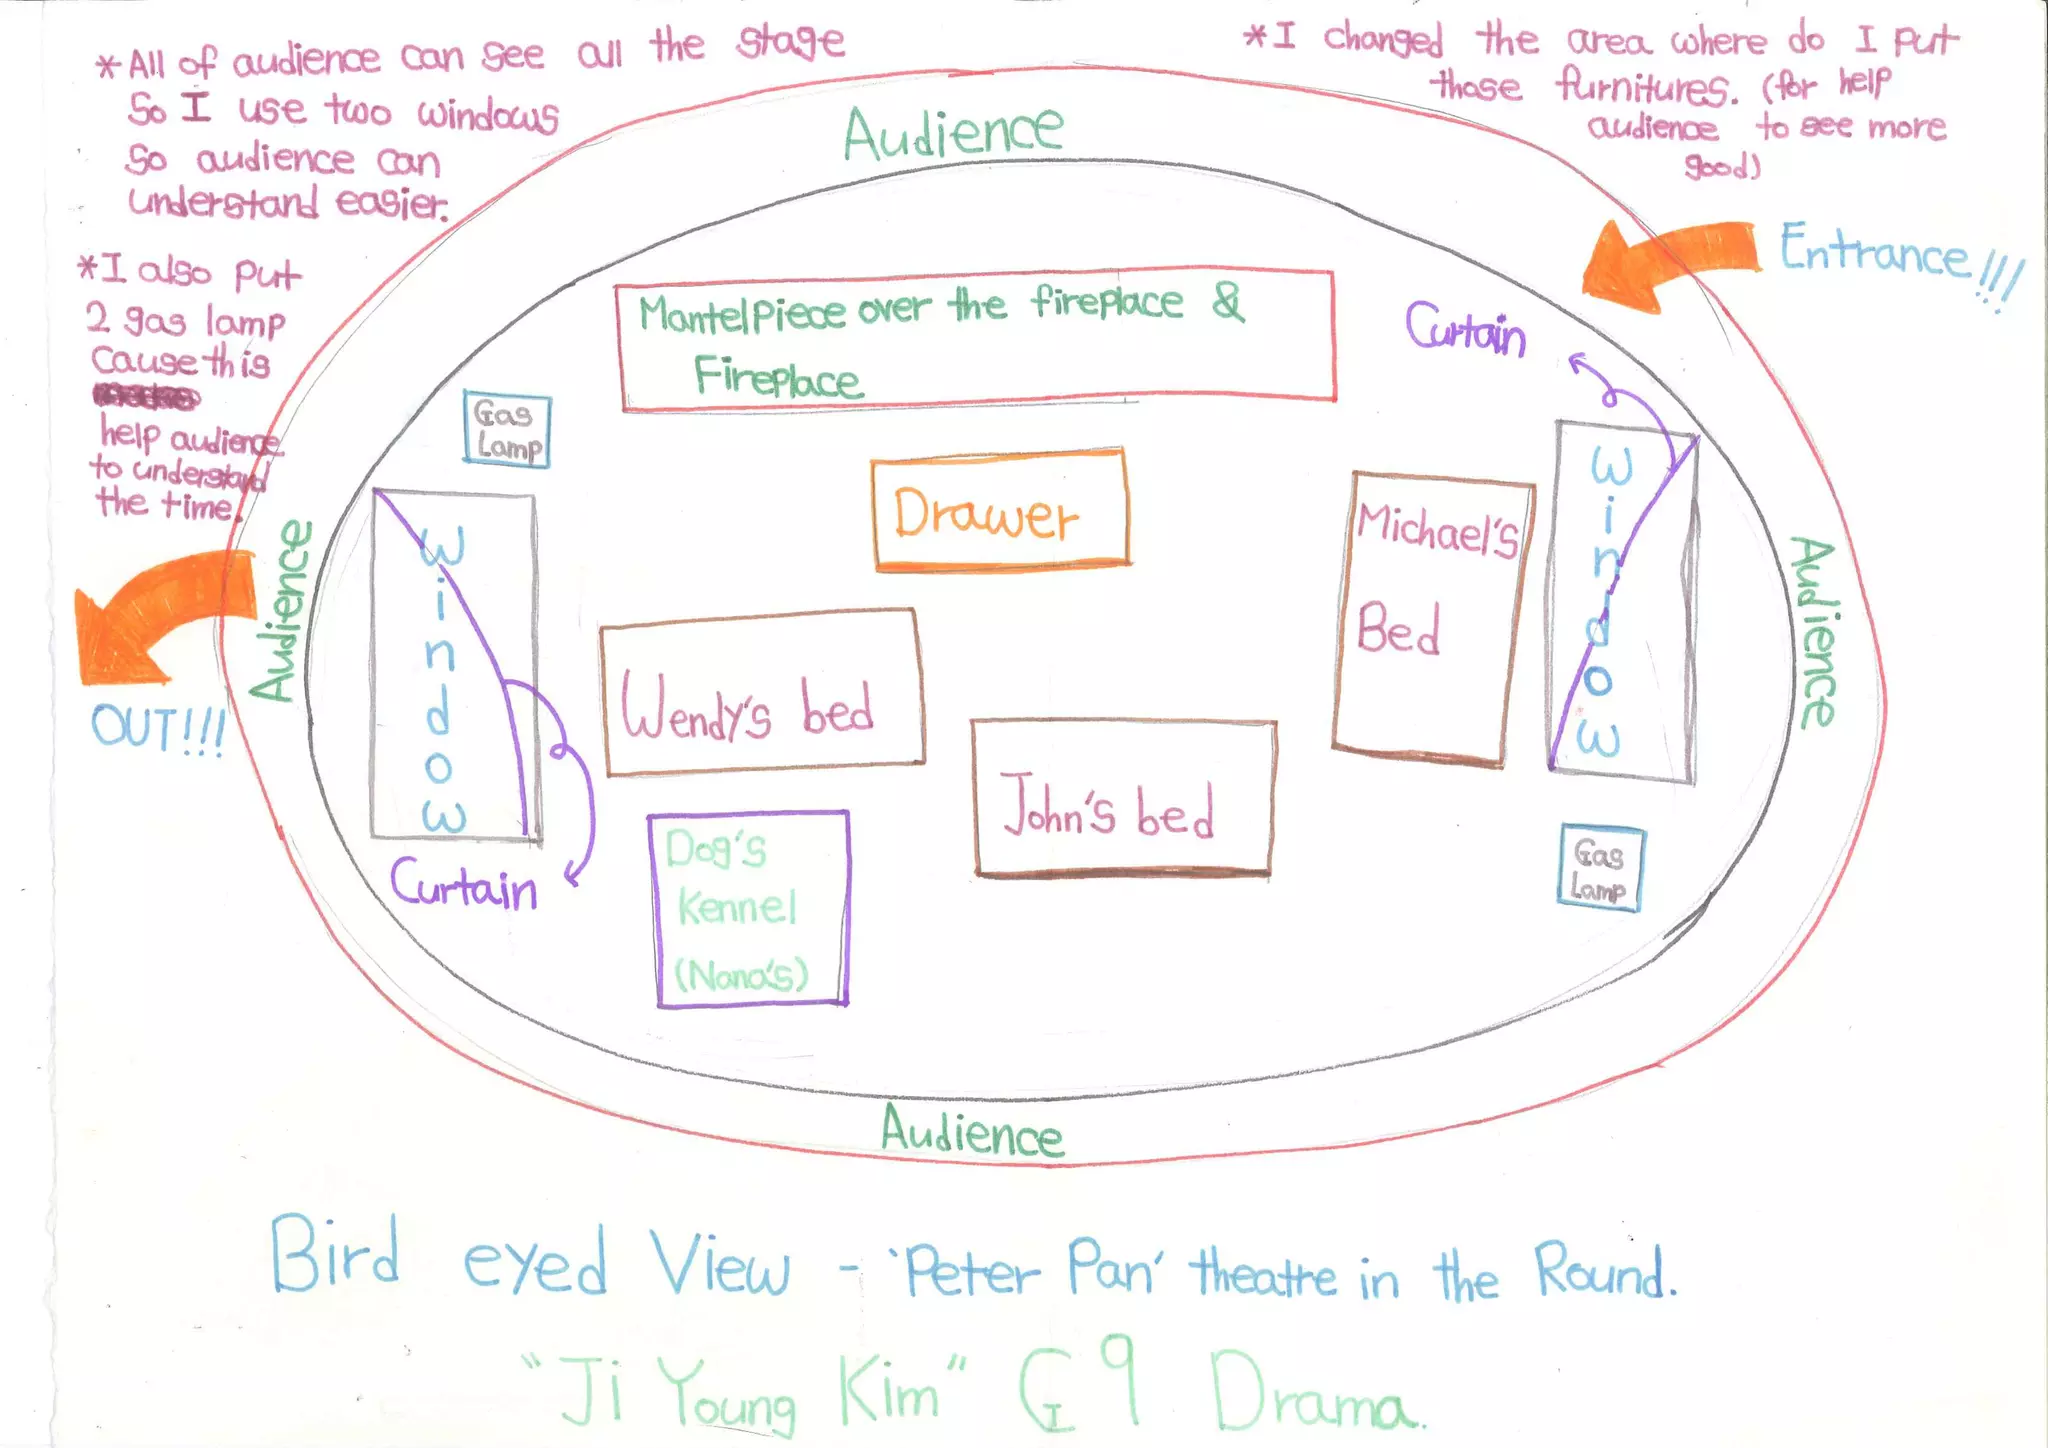 *All of audience can see all the stage
So I use two windows
So audience can
understand easier.
*I changed the area where do I put
those furnitures. (for help
audience to see more
good)
*I also put
2 gas lamp
cause this
help audience
to understand
the time.
Audience
Entrance!!!
Mantelpiece over the fireplace &
Fireplace
Curtain
Gas
Lamp
Drawer
Window
Michael's
Bed
Window
Audience
Audience
OUT!!!
Wendy's bed
John's bed
Curtain
Dog's
Kennel
(Nana's)
Gas
Lamp
Audience
Bird eyed View - 'Peter Pan' theatre in the Round.
"Ji Young Kim" G9 Drama.